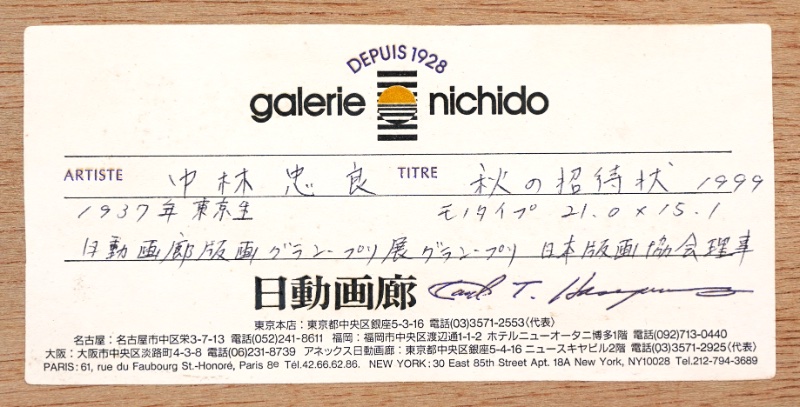 DEPUIS 1928
galerie nichido
ARTISTE 中林忠良 TITRE 秋の招待状 1999
1937年東京生 モノタイプ 21.0×15.1
日動画廊版画グランプリ展グランプリ 日本版画協会理事
日動画廊
東京本店：東京都中央区銀座5-3-16 電話(03)3571-2553(代表)
名古屋：名古屋市中区栄3-7-13 電話(052)241-8611 福岡：福岡市中央区渡辺通1-1-2 ホテルニューオータニ博多1階 電話(092)713-0440
大阪：大阪市中央区淡路町4-3-8 電話(06)231-8739 アネックス日動画廊：東京都中央区銀座5-4-16 ニュースキヤビル2階 電話(03)3571-2925(代表)
PARIS: 61, rue du Faubourg St.-Honoré, Paris 8e Tél.42.66.62.86. NEW YORK: 30 East 85th Street Apt. 18A New York, NY10028 Tel.212-794-3689